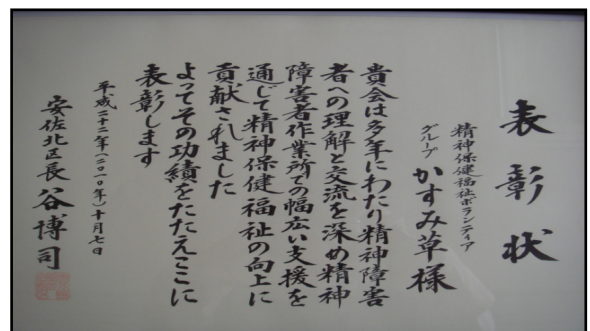 表彰状
精神保健福祉ボランティア
グループ かすみ草様
貴会は多年にわたり精神障害
者への理解と交流を深め精神
障害者作業所での幅広い支援を
通じて精神保健福祉の向上に
貢献されました
よってその功績をたたえここに
表彰します
平成二十二年(二〇一〇年)十月七日
安佐北区長 谷博司